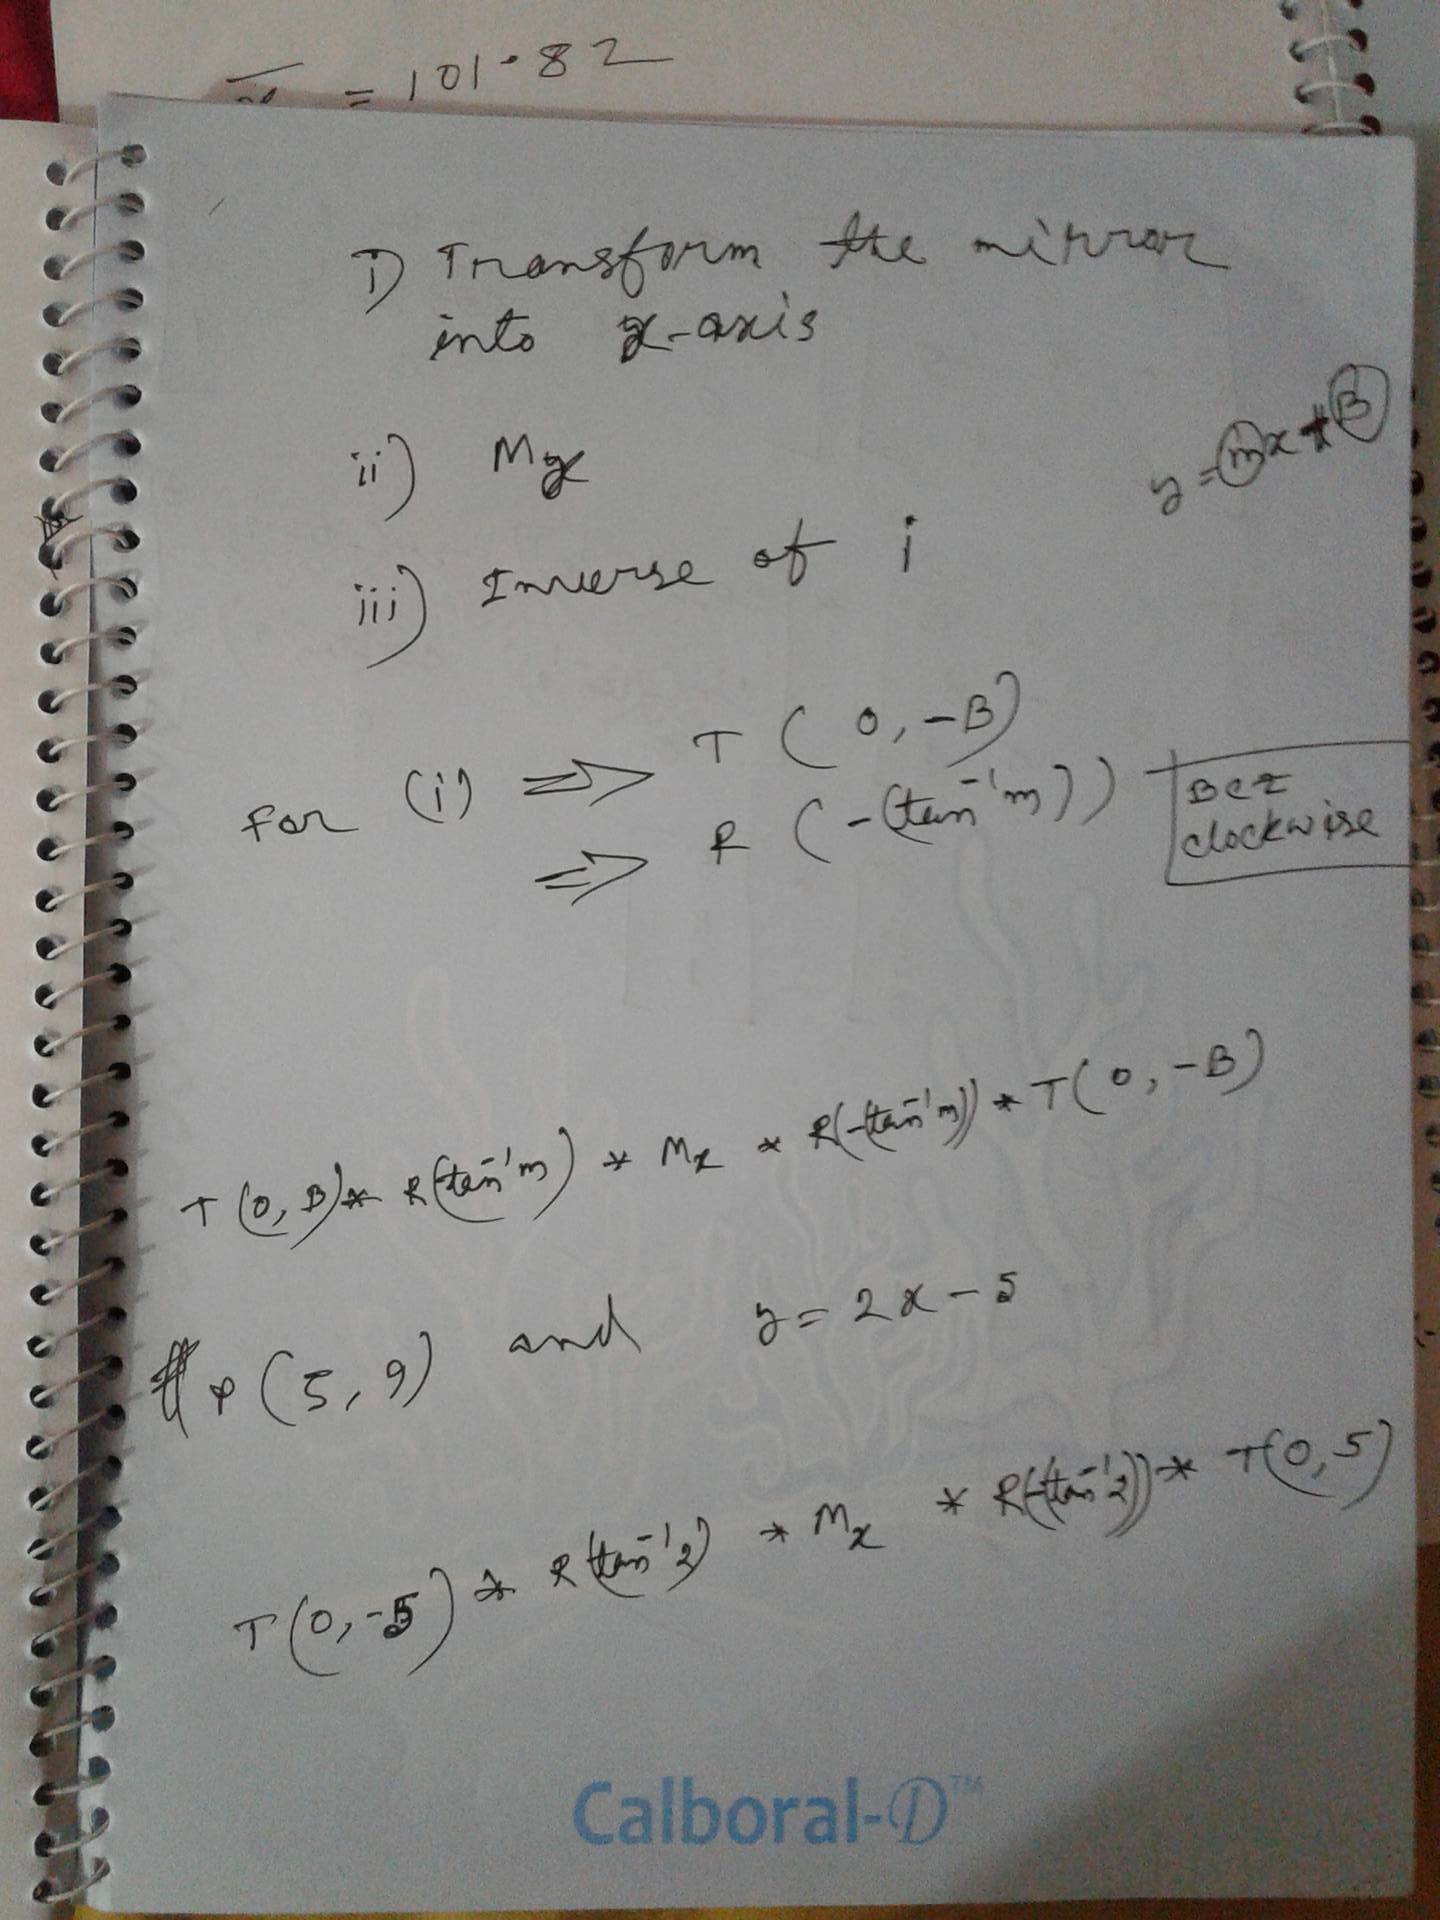 = 101.82
i) Transform the mirror
into x-axis
ii) Mx
y = mx + B
iii) Inverse of i
For (i) ⇒ T (0, -B)
⇒ R (-(tan⁻¹m))
Bcz
clockwise
T(0, B) * R(tan⁻¹m) * Mx * R(-(tan⁻¹m)) * T(0, -B)
# P(5, 9) and y = 2x - 5
T(0, -5) * R(tan⁻¹2) * Mx * R(-(tan⁻¹2)) * T(0, 5)
Calboral-D™